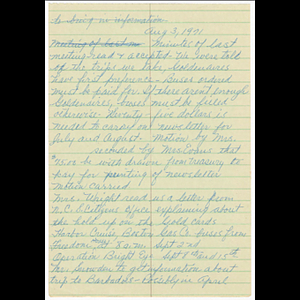 to bring in information
Aug 3, 1971
Meeting of last m Minutes of last
meeting read & accepted. We were told
of the trips we take. Goldenaires
have first preference - Buses ordered
must be paid for. If there aren't enough
Goldenaires, buses must be filled
otherwise. Seventy five dollars is
needed to carry on newsletter for
July and August. Motion by Mrs.
seconded by Mrs. that
$75.00 be with drawn from treasury to
pay for printing of newsletter
Motion Carried
Mrs. Wright read us a letter from
explaining about
the hold up on the Gold Cards
Harbor Cruise, Boston Gas Co. buses from
Freedom House at 8 a.m. Sept 2nd
Operation Bright Eye Sept 1st and 15th
Mr. Snowden to get information about
trip to Barbados - possibly in April